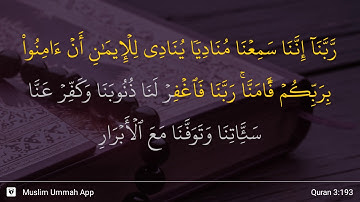 رَّبَّنَآ إِنَّنَا سَمِعْنَا مُنَادِيًا يُنَادِى لِلْإِيمَٰنِ أَنْ ءَامِنُوا۟
بِرَبِّكُمْ فَـَٔامَنَّا ۚ رَبَّنَا فَٱغْفِرْ لَنَا ذُنُوبَنَا وَكَفِّرْ عَنَّا
سَيِّـَٔاتِنَا وَتَوَفَّنَا مَعَ ٱلْأَبْرَارِ
Muslim Ummah App
Quran 3:193